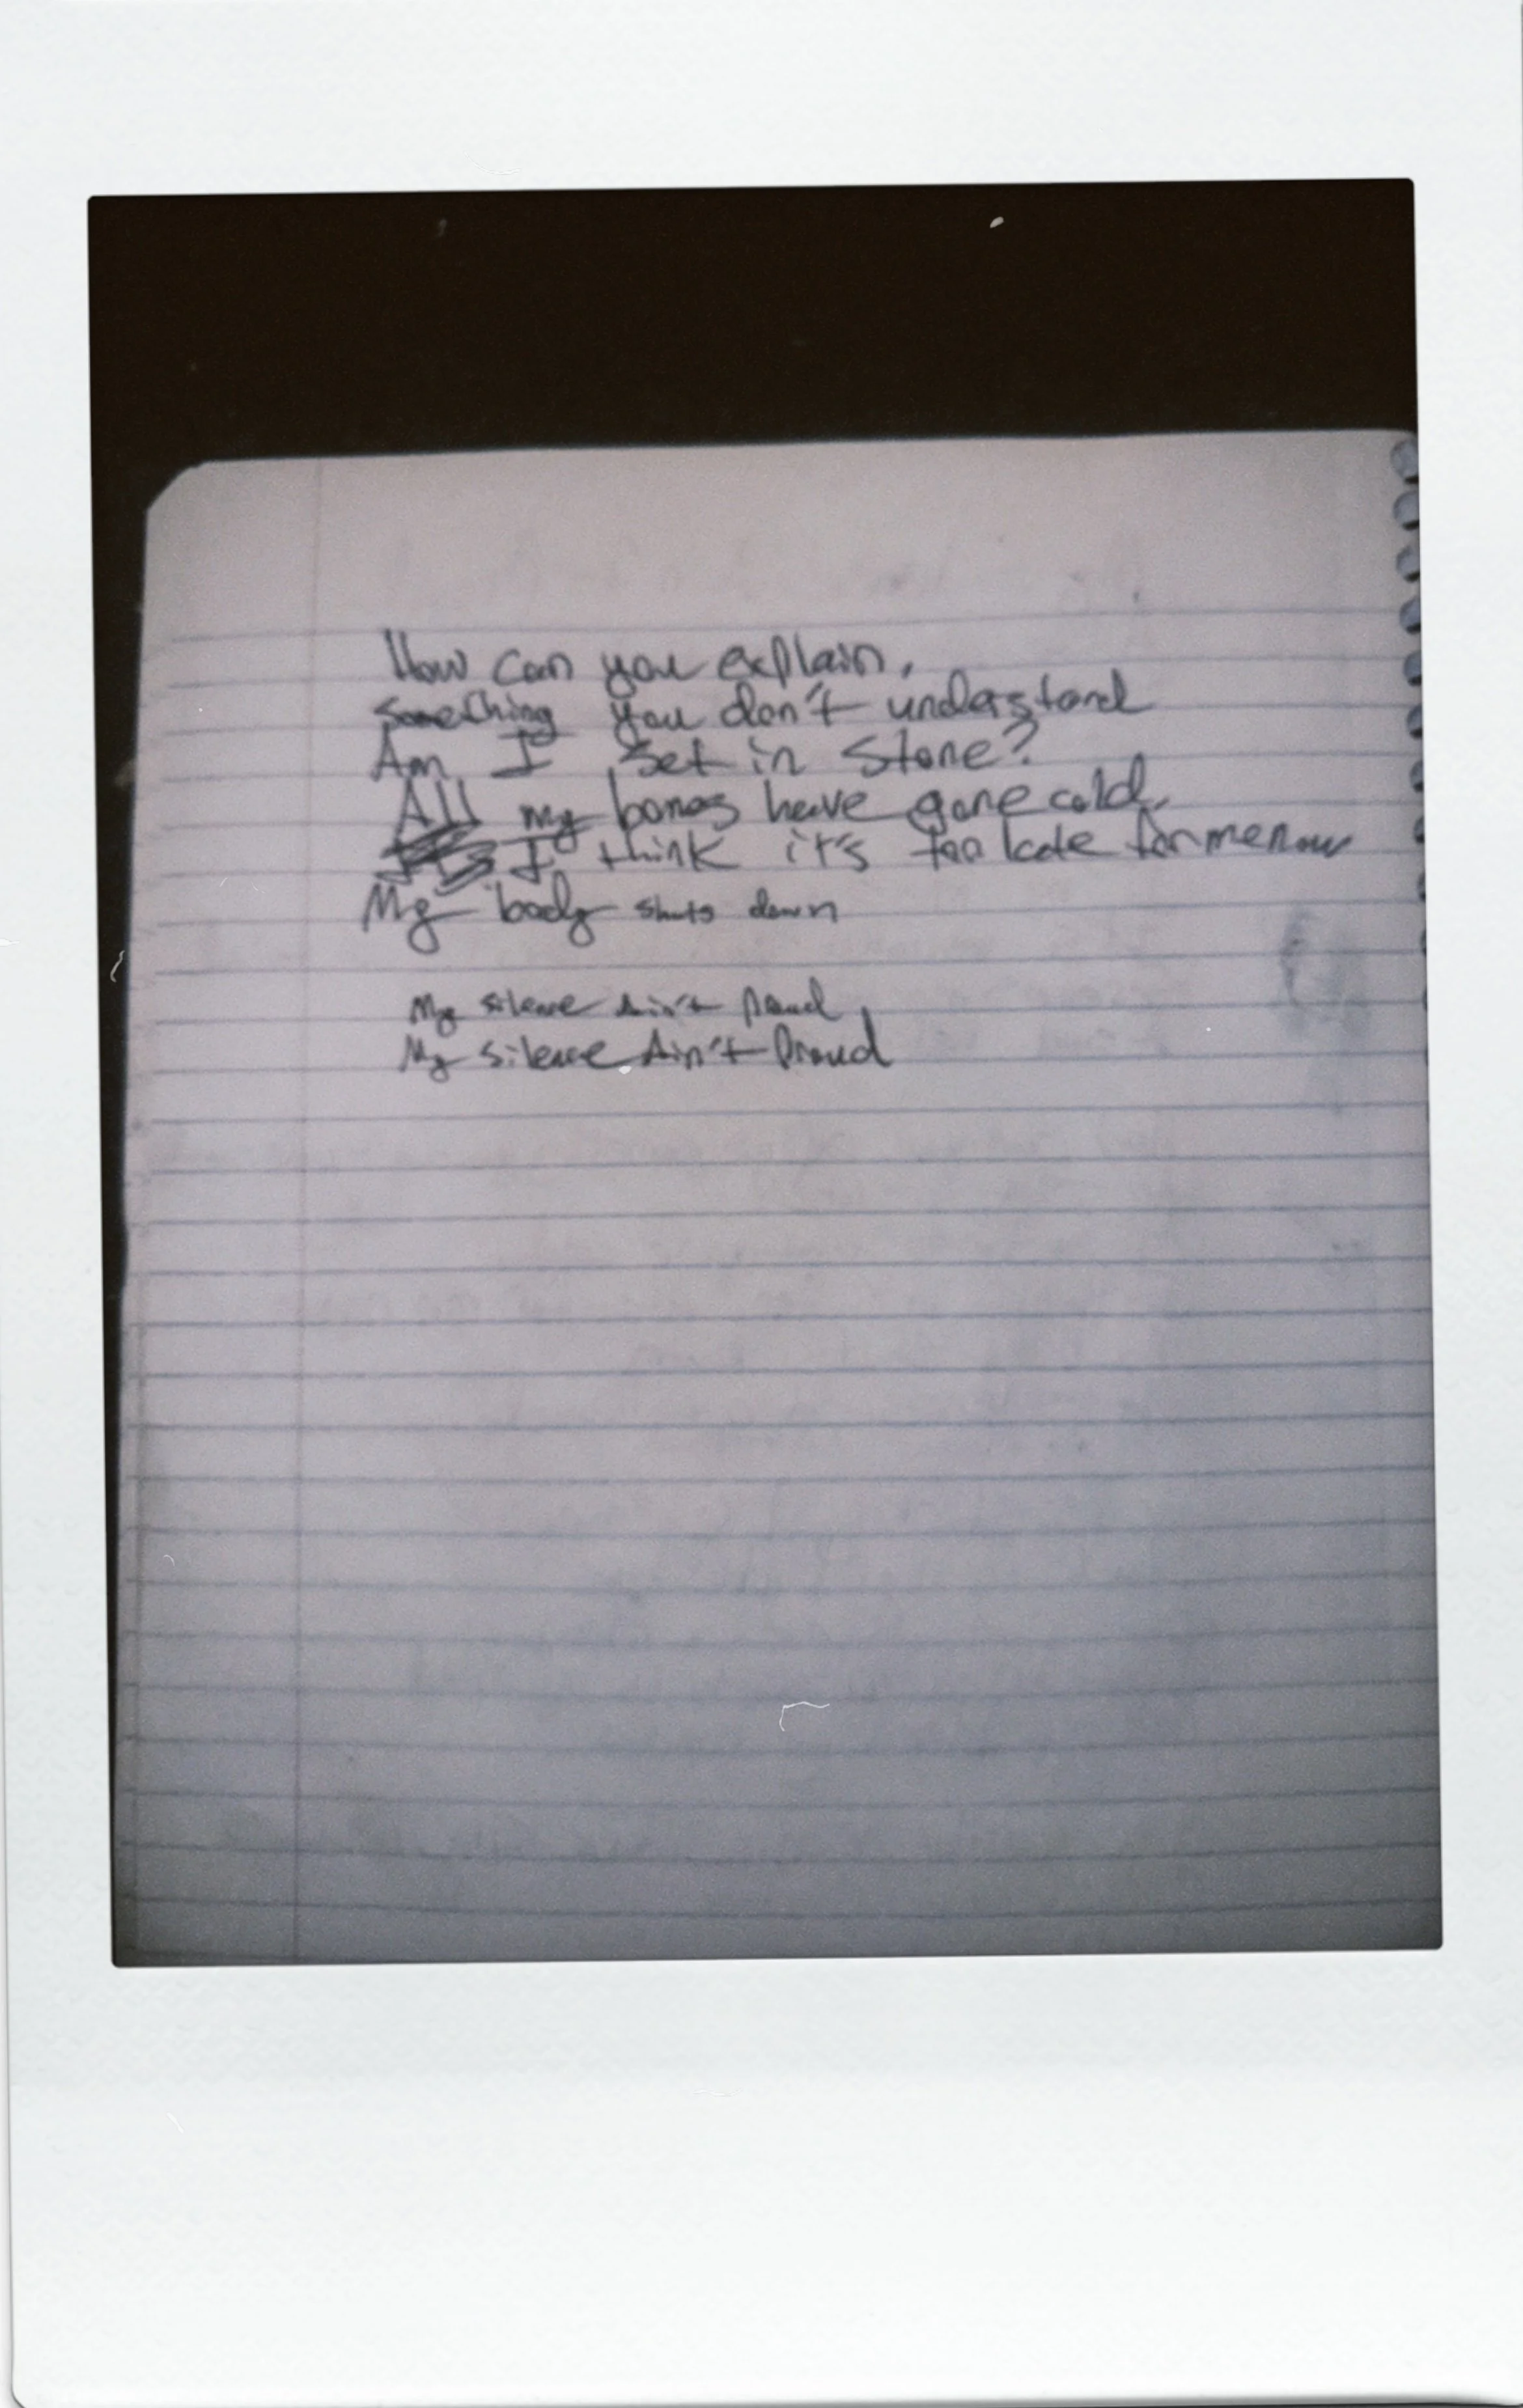 How can you explain,
something you don't understand
Am I set in stone?
All my bones have gone cold.
I think it's too late for me now
My body shuts down
My silence Ain't Proud,
My silence Ain't Proud